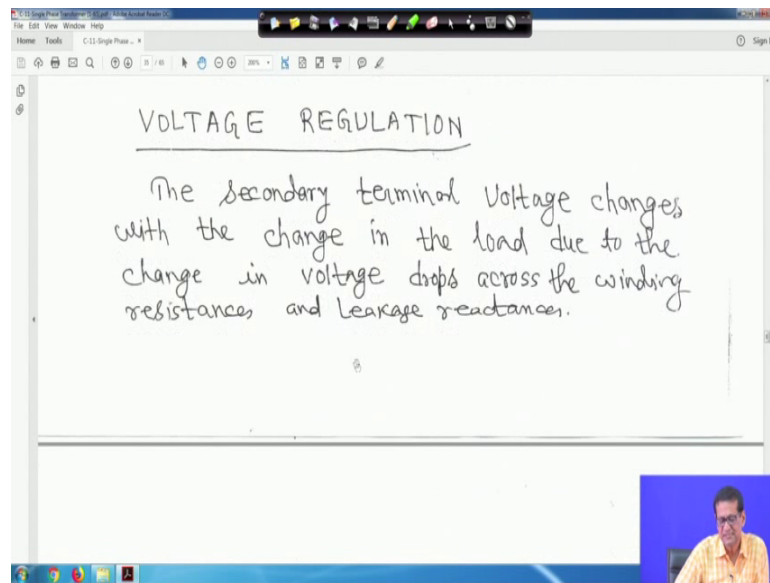 C-11-Single Phase Transformer (1-61).pdf - Adobe Acrobat Reader DC
File Edit View Window Help
Home Tools C-11-Single Phase ... × Sign
200%
VOLTAGE REGULATION
The secondary terminal voltage changes
with the change in the load due to the
change in voltage drops across the winding
resistances and leakage reactances.